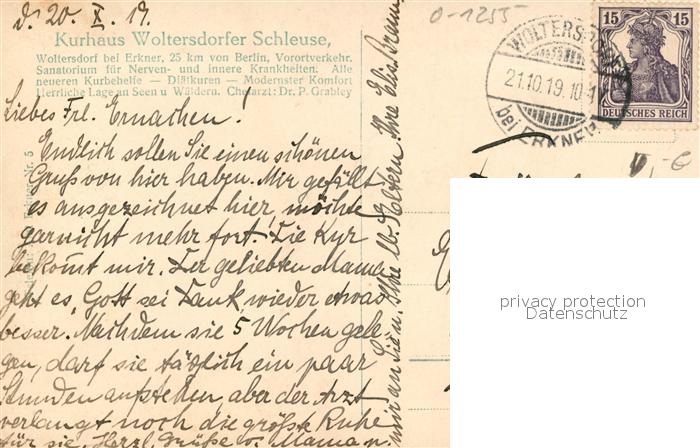 d. 20. X. 19.
Kurhaus Woltersdorfer Schleuse,
Woltersdorf bei Erkner, 25 km von Berlin, Vorortverkehr.
Sanatorium für Nerven- und innere Krankheiten. Alle
neueren Kurbehelfe — Diätkuren — Modernster Komfort
Herrliche Lage an Seen u. Wäldern. Chefarzt: Dr. P. Grabley
Liebes Frl. Ernachen!
Endlich sollen Sie einen schönen
Gruß von hier haben. Mir gefällt
es ausgezeichnet hier, möchte
garnicht mehr fort. Die Kur
bekomt mir. Der geliebten Mama
geht es Gott sei Dank wieder etwas
besser. Nachdem sie 5 Wochen gele-
gen, darf sie täglich ein paar
Stunden aufstehen, aber der Arzt
verlangt noch die größte Ruhe
für sie. Herzl. Grüße v. Mama u.
mir an Sie u. Ihre lb. Eltern. Ihre Elis.
0-1255
WOLTERSDORF
21.10.19.10-
bei ERKNER
15 15
DEUTSCHES REICH
privacy protection
Datenschutz